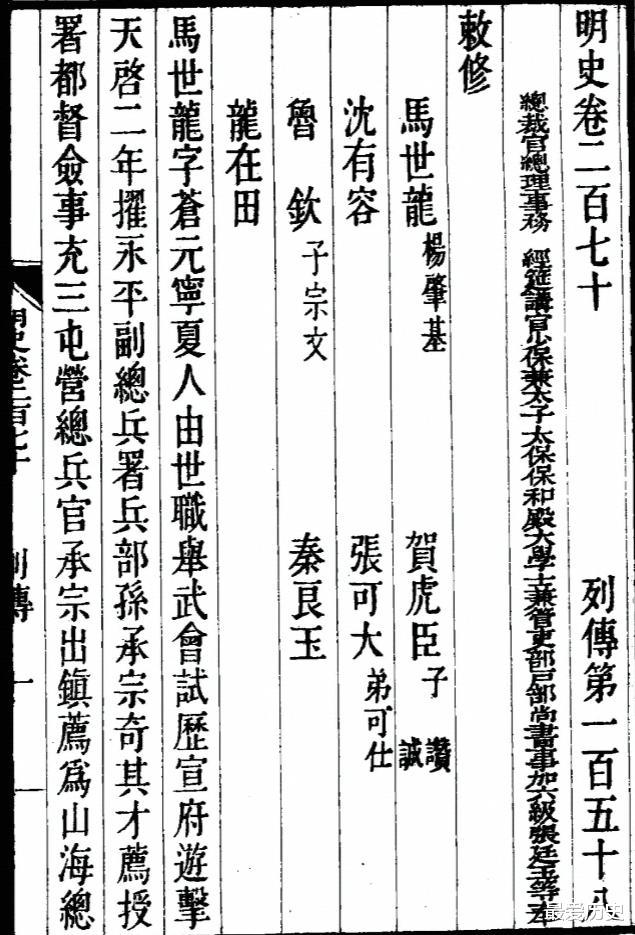 明史卷二百七十 列傳第一百五十八
總裁官總理事務 經筵講官少保兼太子太保保和殿大學士兼管吏部戶部尚書事加六級張廷玉等奉
敕修
馬世龍 楊肇基 賀虎臣 子讚 誠
沈有容 張可大 弟可仕
魯欽 子宗文 秦良玉
龍在田
馬世龍字蒼元寧夏人由世職舉武會試歷宣府遊擊
天啓二年擢永平副總兵署兵部孫承宗奇其才薦授
署都督僉事充三屯營總兵官承宗出鎮薦爲山海總
明史卷二百七十 列傳 一
最爱历史